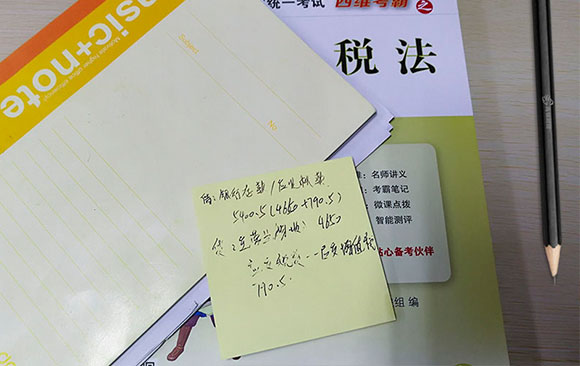 统一考试 四维考霸之
税法
sic+note
Subject
No
名师讲义
考霸笔记
微课点拨
智能测评
贴心备考伙伴
组 编
借:银行存款/应收账款
5400.5(4650+790.5)
贷:主营业务 4650
应交税费--应交增值税
790.5